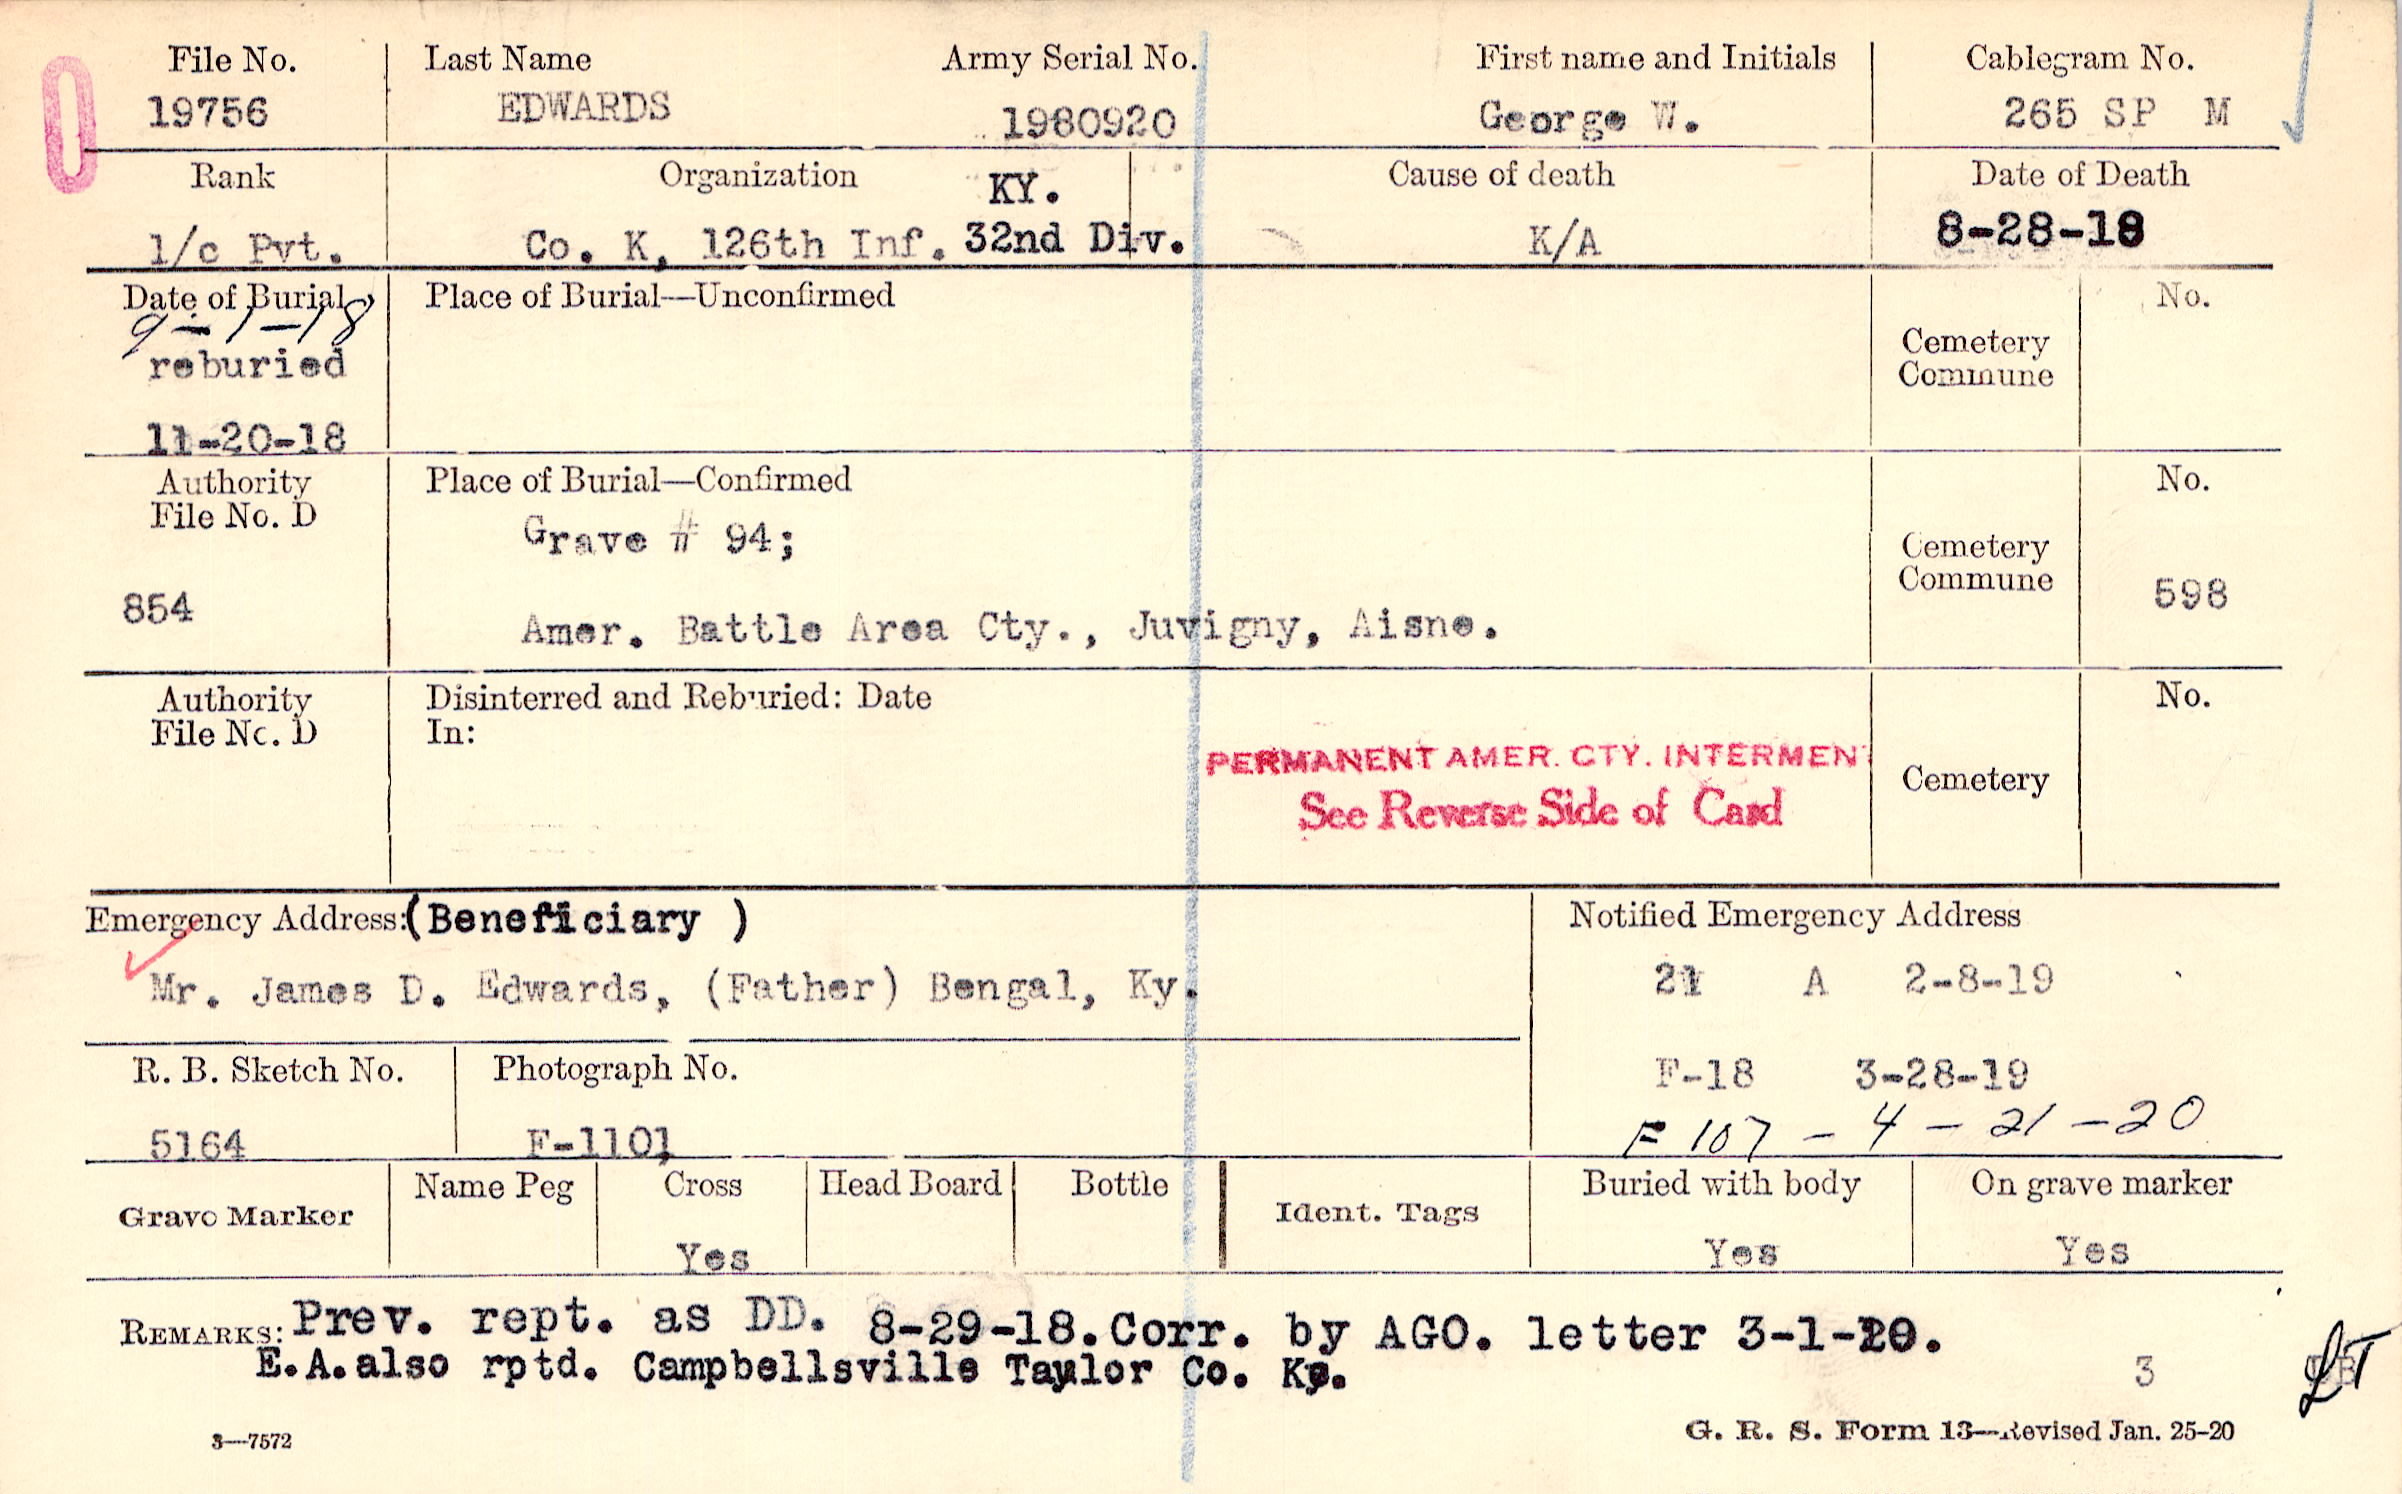 File No. Last Name Army Serial No. First name and Initials Cablegram No.
19756 EDWARDS 1980920 George W. 265 SP M
Rank Organization KY. Cause of death Date of Death
1/c Pvt. Co. K, 126th Inf. 32nd Div. K/A 8-28-18
Date of Burial Place of Burial—Unconfirmed No.
9-1-18
reburied Cemetery
Commune
11-20-18
Authority Place of Burial—Confirmed No.
File No. D
Grave # 94;
Cemetery
Commune
854 598
Amer. Battle Area Cty., Juvigny, Aisne.
Authority Disinterred and Reburied: Date No.
File No. D In:
PERMANENT AMER. CTY. INTERMEN
Cemetery
See Reverse Side of Card
Emergency Address: (Beneficiary ) Notified Emergency Address
Mr. James D. Edwards, (Father) Bengal, Ky. 21 A 2-8-19
R. B. Sketch No. Photograph No. F-18 3-28-19
5164 F-1101 F 107 - 4 - 21 - 20
Grave Marker Name Peg Cross Head Board Bottle Ident. Tags Buried with body On grave marker
Yes Yes Yes
REMARKS: Prev. rept. as DD. 8-29-18. Corr. by AGO. letter 3-1-20.
E.A. also rptd. Campbellsville Taylor Co. Ky. 3
3—7572 G. R. S. Form 13—Revised Jan. 25-20